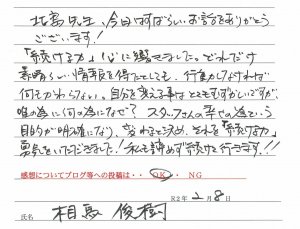 北島先生、今日はすばらしいお話をありがとう
ございます!
「続ける力」心に響きました。どれだけ
素晴らしい情報を得たとしても、行動しなければ
何も変わらない。自分を変える事はとてもむずかしいですが、
誰の為に何の為になぜ? スタッフさんの幸せの為という
目的が明確になり、決めること、それを「続ける力」
勇気をいただきました!私も諦めず続けて行きます!!
感想についてブログ等への投稿は・・ OK ・ NG
R2年 2月 8日
氏名 相馬 俊樹